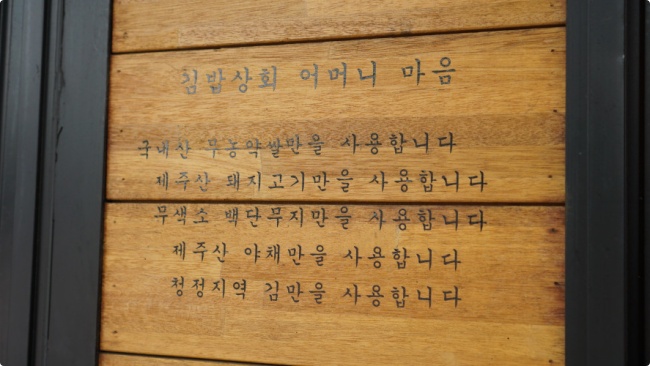 김밥상회 어머니 마음
국내산 무농약쌀만을 사용합니다
제주산 돼지고기만을 사용합니다
무색소 백단무지만을 사용합니다
제주산 야채만을 사용합니다
청정지역 김만을 사용합니다